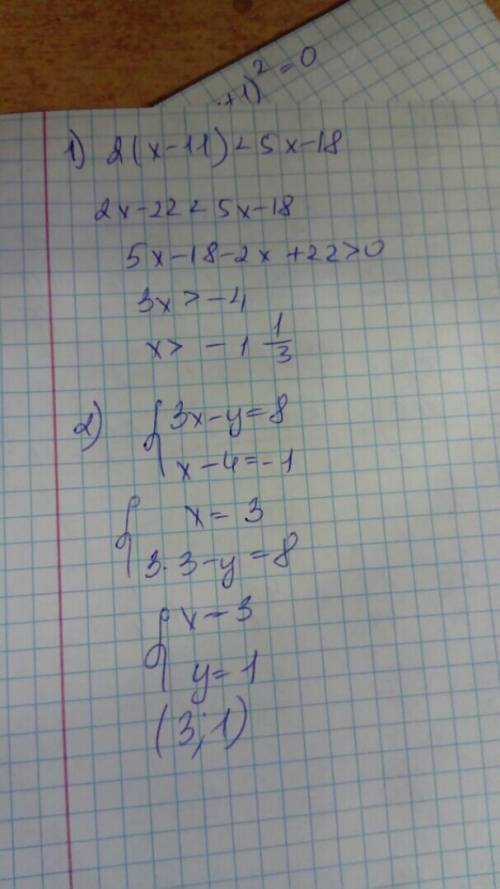 +1)² = 0
1) 2(x-11) < 5x-18
2x-22 < 5x-18
5x-18-2x+22>0
3x > -4
x > -1 1/3
2) { 3x-y=8
x-4=-1
{ x = 3
3·3-y=8
{ x = 3
y = 1
(3;1)